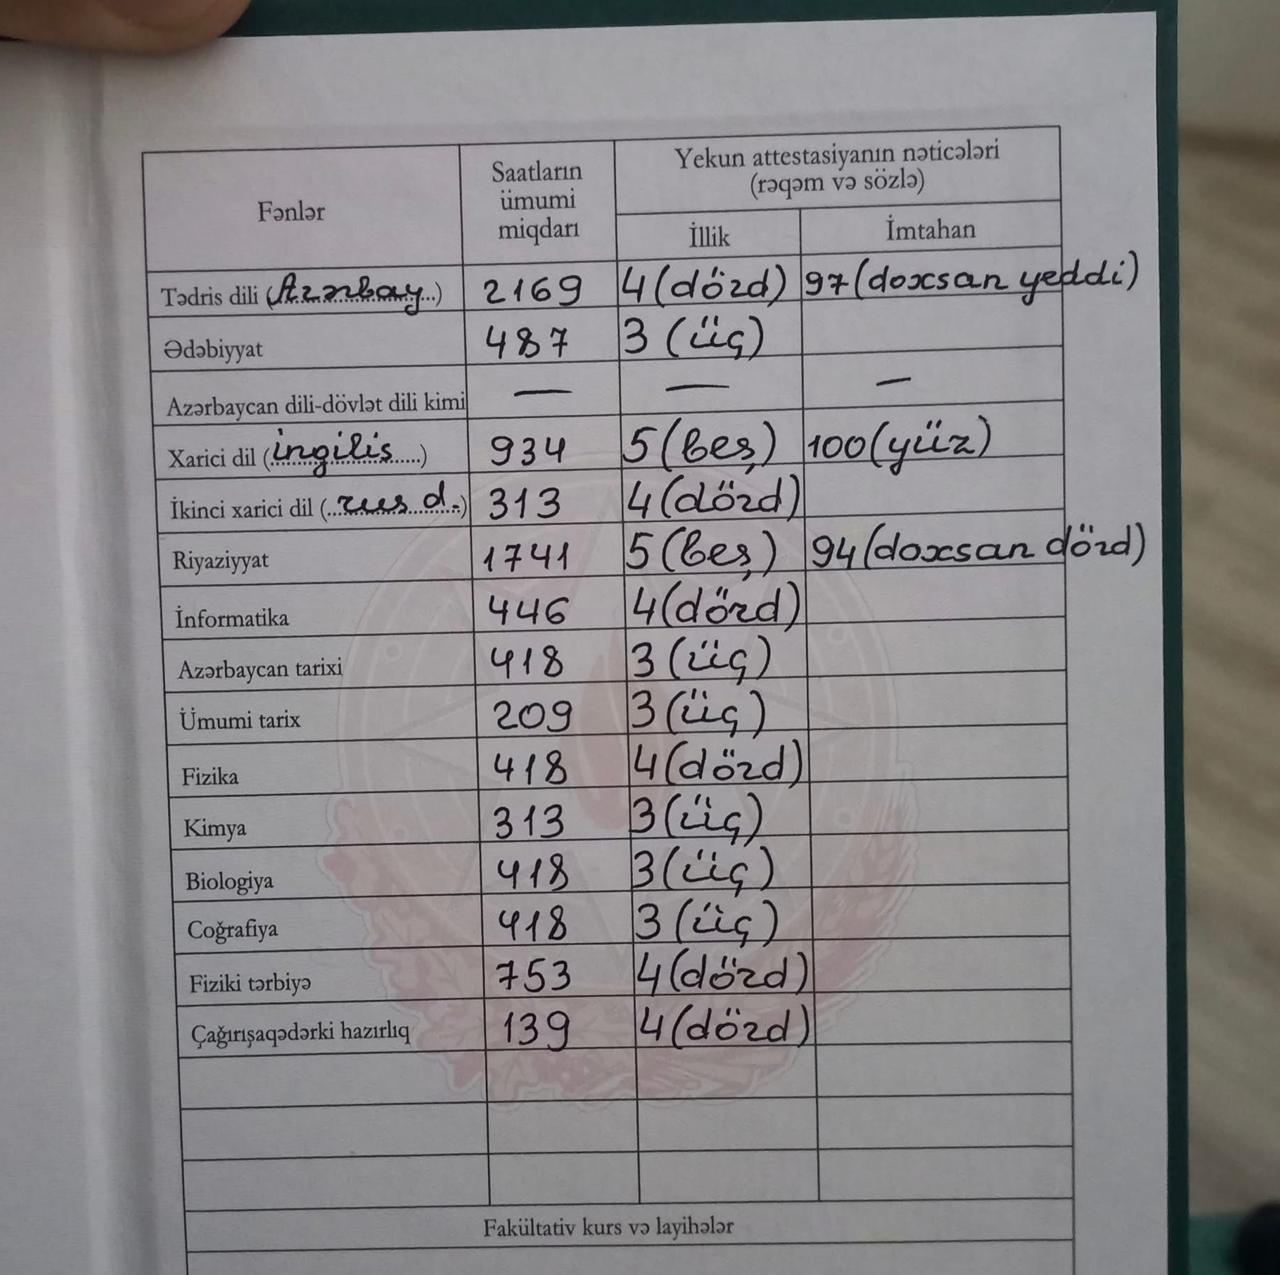 Fənlər Saatların ümumi miqdarı Yekun attestasiyanın nəticələri (rəqəm və sözlə)
İllik İmtahan
Tədris dili (Azərbay...) 2169 4 (dörd) 97 (doxsan yeddi)
Ədəbiyyat 487 3 (üç)
Azərbaycan dili-dövlət dili kimi — — —
Xarici dil (ingilis......) 934 5 (beş) 100 (yüz)
İkinci xarici dil (...rus d..) 313 4 (dörd)
Riyaziyyat 1741 5 (beş) 94 (doxsan dörd)
İnformatika 446 4 (dörd)
Azərbaycan tarixi 418 3 (üç)
Ümumi tarix 209 3 (üç)
Fizika 418 4 (dörd)
Kimya 313 3 (üç)
Biologiya 418 3 (üç)
Coğrafiya 418 3 (üç)
Fiziki tərbiyə 753 4 (dörd)
Çağırışaqədərki hazırlıq 139 4 (dörd)
Fakültativ kurs və layihələr